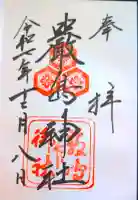 奉拝
嚴島神社
令和七年十二月八日